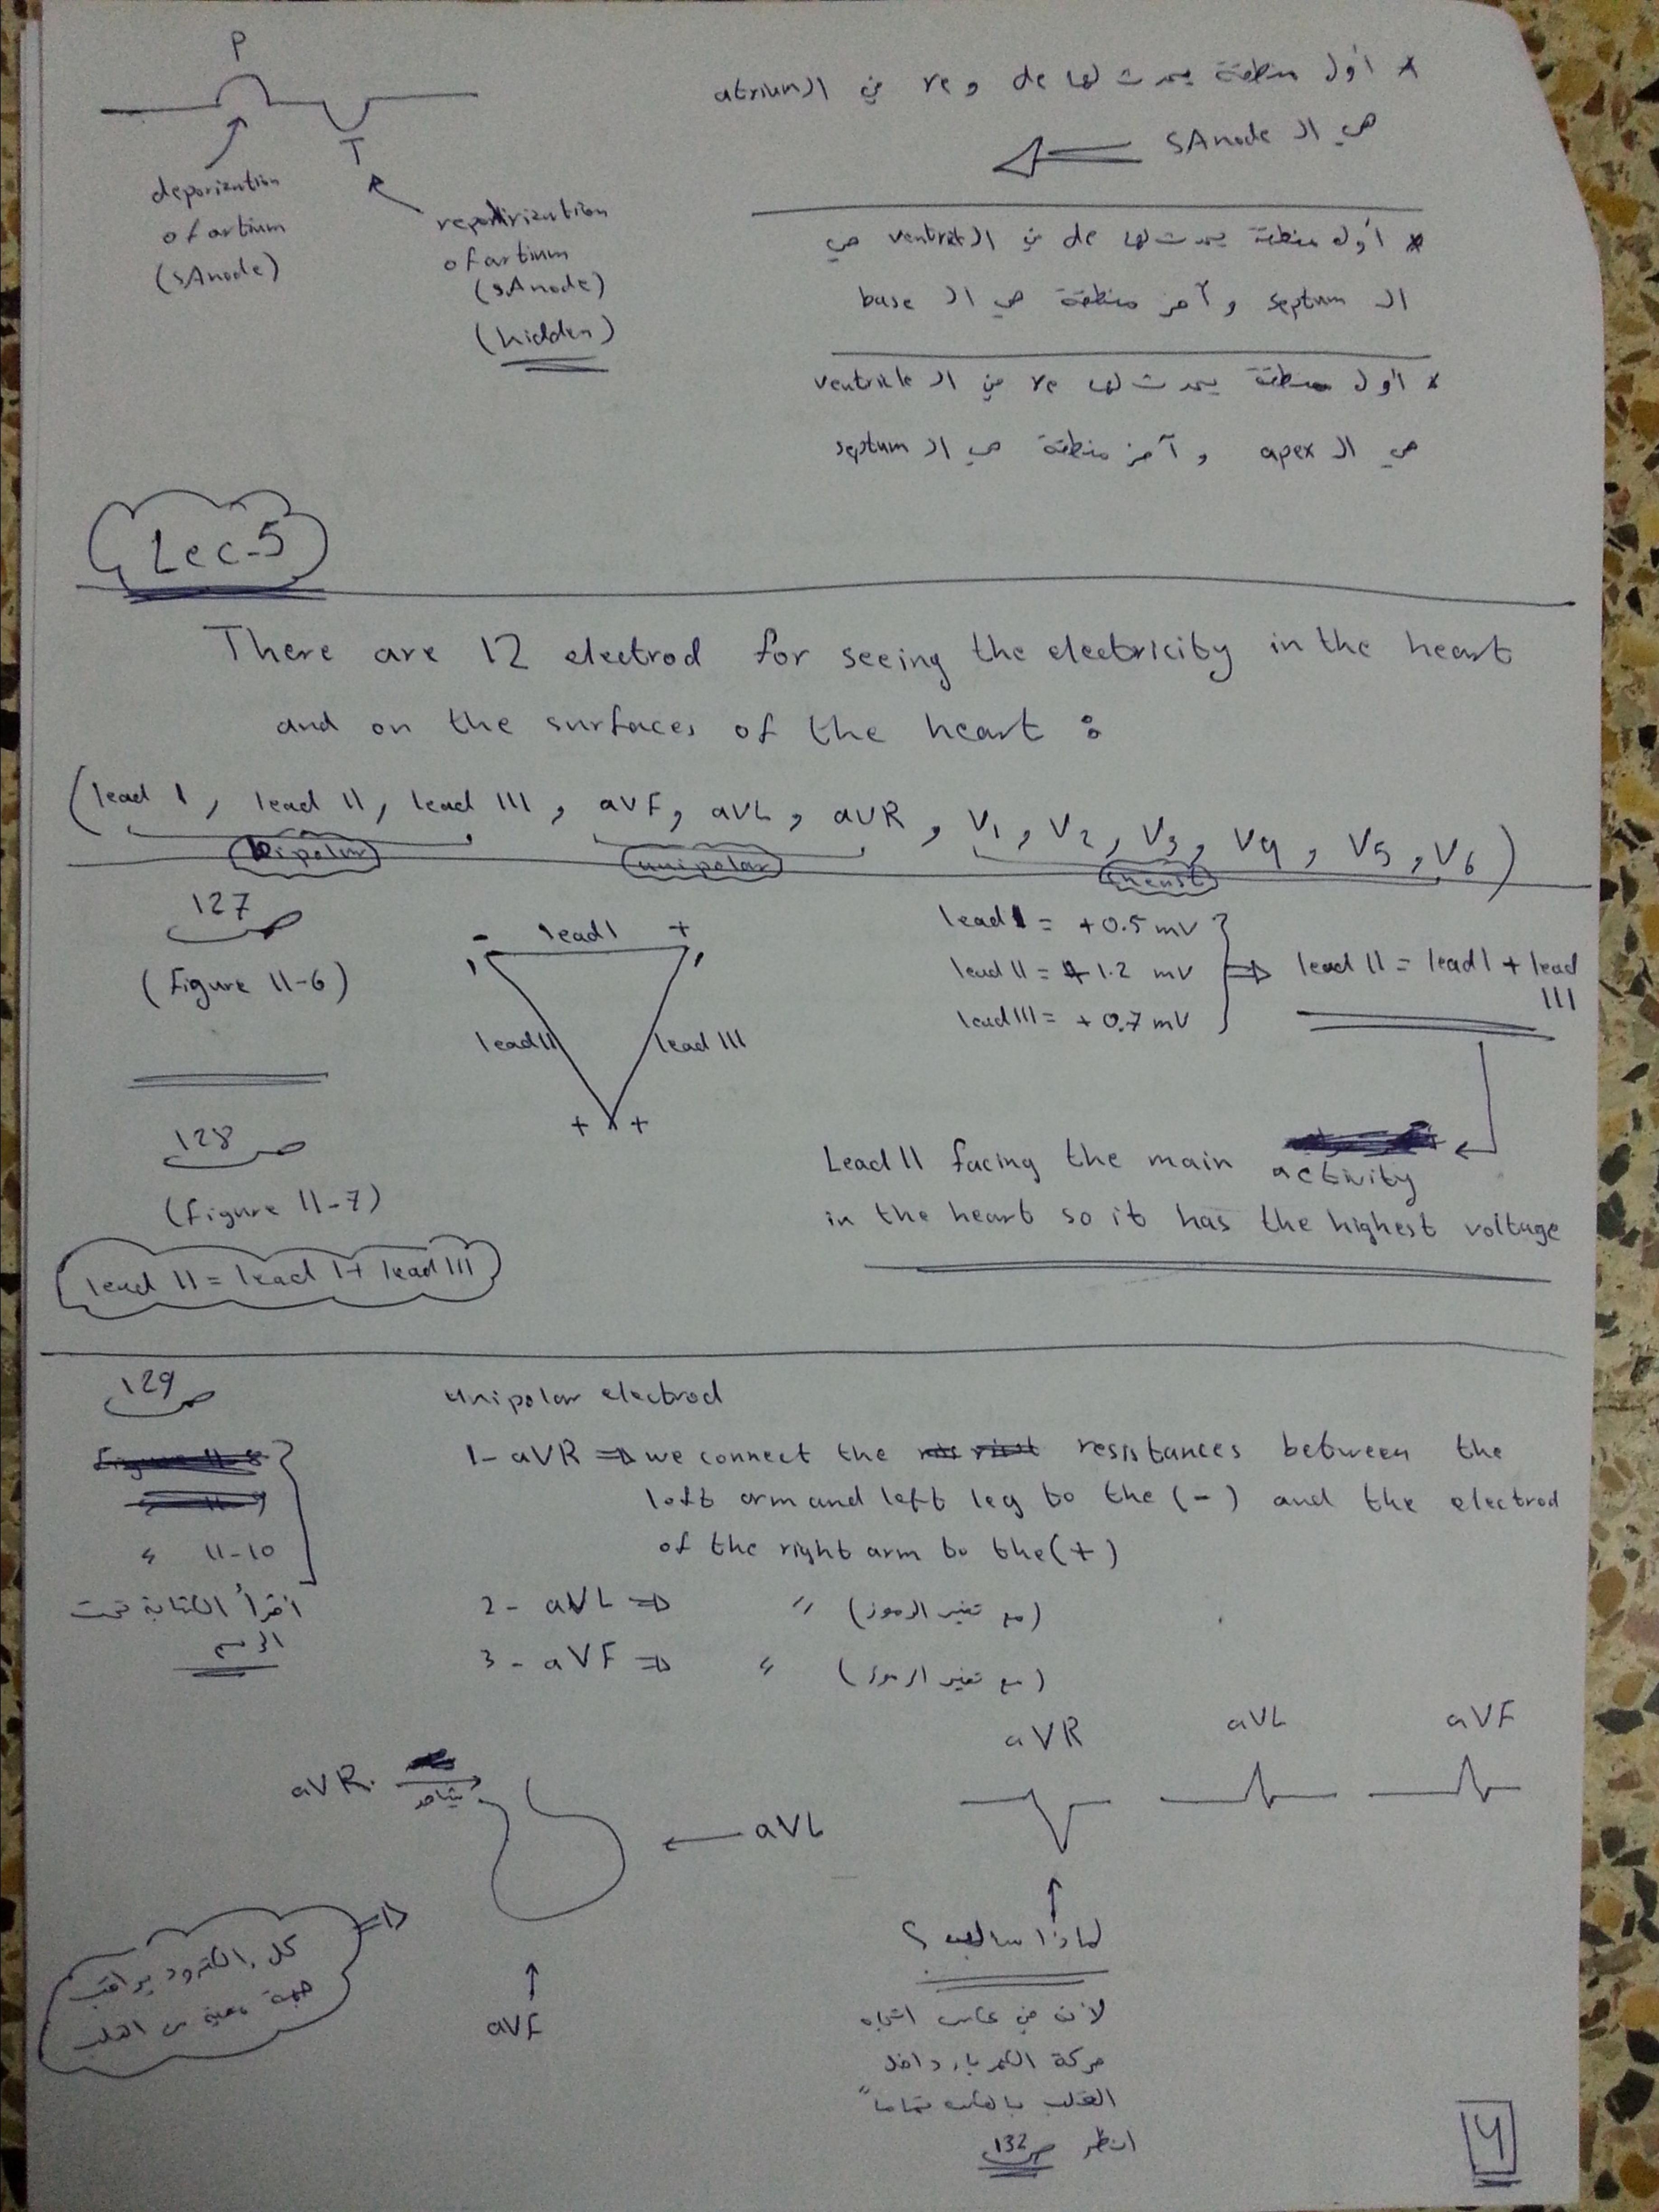 P
T
deporization
of artium
(SAnode)
repolirization
of artium
(SAnode)
(hidden)
* أول منطقة يحدث لها de و re في الـ atrium
هي الـ SAnode
* أول منطقة يحدث لها de في الـ ventricle هي
الـ septum وآخر منطقة هي الـ base
* أول منطقة يحدث لها re في الـ ventricle
هي الـ apex وآخر منطقة هي الـ septum
Lec-5
There are 12 electrod for seeing the electricity in the heart
and on the surfaces of the heart :
(lead I, lead II, lead III, aVF, aVL, aVR, V1, V2, V3, V4, V5, V6)
bipolar unipolar
ص 127
(Figure 11-6)
- lead I +
lead II lead III
+ +
lead I = +0.5 mV
lead II = +1.2 mV
lead III = +0.7 mV
⇒ lead II = lead I + lead
III
ص 128
(Figure 11-7)
lead II = lead I + lead III
Lead II facing the main activity
in the heart so it has the highest voltage
ص 129
" 11-10
اقرأ الكتابة تحت
الرسم
Unipolar electrod
1- aVR ⇒ we connect the resistances between the
left arm and left leg to the (-) and the electrod
of the right arm to the (+)
2- aVL ⇒ " (مع تغير الرموز)
3- aVF ⇒ " (مع تغير الرموز)
aVR aVL aVF
aVR
يشاهد
aVL
aVF
كل الكترود يراقب
جهة معينة من القلب
لماذا سالب ؟
لأن في عكس اتجاه
حركة الكهرباء داخل
القلب بالعكس تماماً
انظر ص 132
4